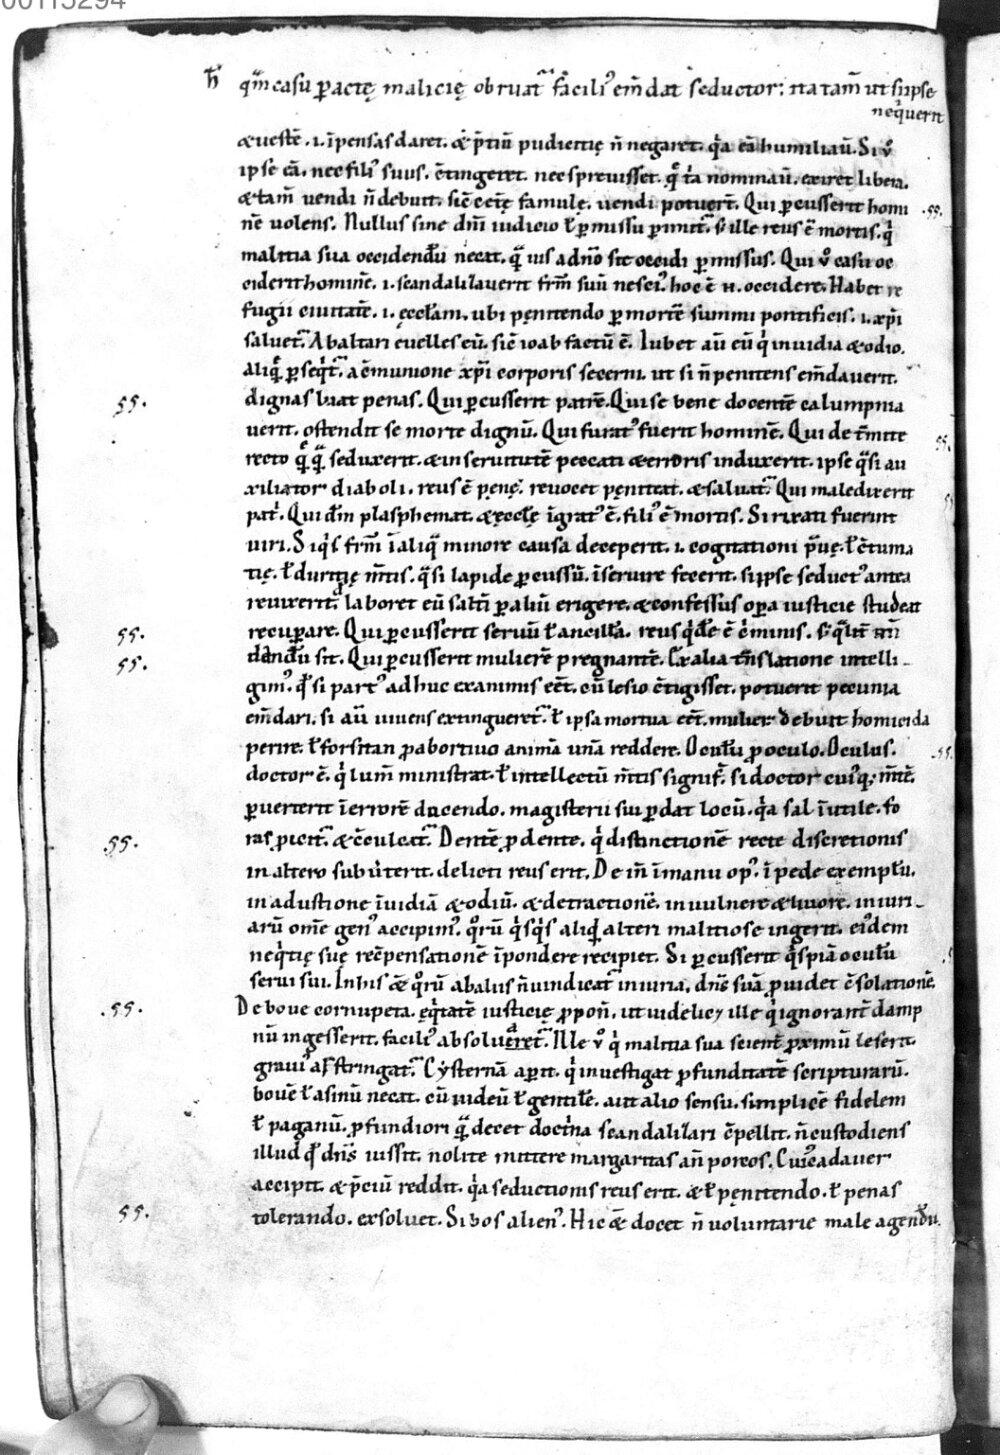 00115294
h̄ qm̄ casu ꝑactę malicię obruat᷑ facili᷒ em̄dat seductor: ita tam̄ ut si ipse
neq̇uerit
& ueste᷒ .i. īpensas daret. & p̄tiū pudicitię n̄ negaret. q̇a eā humiliaū. Si ů
ipse eā. nec fili᷒ suus. c̄tingeret. nec spreuisset. exiret libera.
& tam̄ uendi n̄ debuit. sic̄ cętę famulę. uendi potuer̄t. Qui ꝑcusserit homi .ss.
nē uolens. Nullus sine dn̄i iudicio ł ꝑmissu ꝑimit᷑. s; ille reus ē mortis. q̇
malitia sua occidendū necat. uis ad n̄o sit occidi ꝑmissus. Qui ů casu oc
ciderit hominē .i. scandalizauerit fr̄m suū nesci᷒. hoc ē n. occidere. Habet re
fugii ciuitatē .i. ęcclam. ubi pęnitendo ꝑ mortē summi pontificis .i. xp̄i
saluet᷑. Ab altari euelles eū. sic̄ ioab factū ē. Iubet aū eū q̇ inuidia & odio.
aliq̄ ꝑseq̇t᷑. a c̄munione xp̄i corporis secerni. ut si n̄ penitens em̄dauerit.
.ss. dignas luat penas. Qui ꝑcusserit patrē. Qui se bene docentē calumpnia
uerit. ostendit se morte dignū. Qui furat᷒ fuerit hominē. Qui de t̄mite ss.
recto q̄ q̄ seduxerit. & in seruitutē peccati & erroris induxerit. ipse q̄si au
xiliator diaboli. reus ē pęnę. reuocet pęniteat. & saluat᷑. Qui maledixerit
pat̄. Qui dm̄ plasphemat. & ęcclę īgrat᷒ ē. fili᷒ ē mortis. Si rixati fuerint
uiri. Siq̇s fr̄m ī aliq̄ minore causa deceperit .i. cogitationi p̄uę. ł c̄tuma
tię. ł duritię m̄tis. q̄si lapide ꝑcussū. īseruire fecerit. si ipse seduct᷒ antea
reuixerit. laboret eū saltī ꝑ aliū erigere. & confessus oꝑa iusticie studeat
.ss. recuꝑare. Qui ꝑcusserit seruū ł ancillā. reus q̇dē ē c̄minis. s; q̄lit̄
.ss. dandū sit. Qui ꝑcusserit mulierē pregnantē. Ex alia tn̄slatione intelli-
gim᷒. qđ si part᷒ adhuc exanimis eēt. cū lesio c̄tigisset. potuerit pecunia
em̄dari. si aū uiuens extingueret᷑. ł ipsa mortua eēt. mulier debuit homicida
perire. ł forsitan ꝓ abortiuo animā unā reddere. Oculū ꝓ oculo. Oculus. .ss.
doctor ē. q̇ lum̄ ministrat. ł intellectū m̄tis signif̄. si doctor cui᷒q; m̄tē.
ꝑuerterit ī errorē ducendo. magisterii sui ꝑdat locū. q̇a sal īutile. fo
.ss. ras ꝓicit᷑. & c̄culcat᷑. Dentē ꝓ dente. q̇ distinctionē recte discretionis
in altero subůterit. delicti reus erit. De m̄ īmanu op᷒. ī pede exemplū.
in adustione īuidiā & odiū. & detractionē. in uulnere & liuore. iniuri-
arū om̄e gen᷒ accipim᷒. q̊rū q̇sq̇s aliq̇d alteri malitiose ingerit. ei᷒dem
neq̇tię suę rec̄pensationē ī pondere recipiet. Si ꝑcusserit q̇spiā oculū
serui sui. In his & q̊rū ab aliis n̄ uindicat᷑ iniuria. dn̄s suā ꝓuidet c̄solationē.
.ss. De boue cornupeta. ęq̇tatē iusticię ꝓpon̄. ut uidelicꝫ ille q̇ ignorant̄ damp
nū ingesserit. facili᷒ absolueret᷑. Ille ů q̇ malitia sua scient̄ ꝓximū leserit.
graui᷒ astringat᷑. Cysternā aꝑit. q̇ inuestigat ꝓfunditatē scripturarū.
bouē ł asinū necat. cū iudeū ł gentilē. aut alio sensu. simplicē fidelem
ł paganū. ꝓfundiori q̄ decet doctͥna scandalizari c̄pellit. n̄ custodiens
illud qđ dn̄s iussit. nolite mittere margaritas an̄ porcos. Cui᷒ cadauer
accipit. & p̄ciū reddit. q̇a seductionis reus erit. & ł pęnitendo. ł penas
.ss. tolerando. exsoluet. Si bos alien᷒. Hic & docet n̄ uoluntarie male agendū.